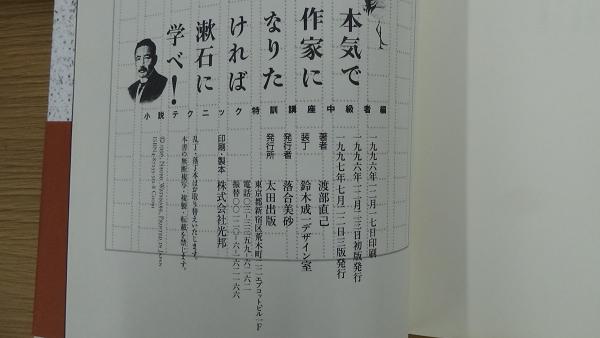 本気で
作家に
なりた
ければ
漱石に
学べ!
小説テクニック特訓講座中級者編
一九九六年一二月一七日印刷
一九九六年一二月二三日初版発行
一九九七年七月一二日三版発行
著者 渡部直己
装丁 鈴木成一デザイン室
発行者 落合美砂
発行所 太田出版
東京都新宿区荒木町二二エプコットビル一F
電話〇三-三三五九-六二六二
振替〇〇一二〇-六-一六二一六六
印刷・製本 株式会社光邦
乱丁・落丁本はお取り替えいたします。
本書の無断複写・複製・転載を禁じます。
© 1996, Naomi Watanabe, Printed in Japan